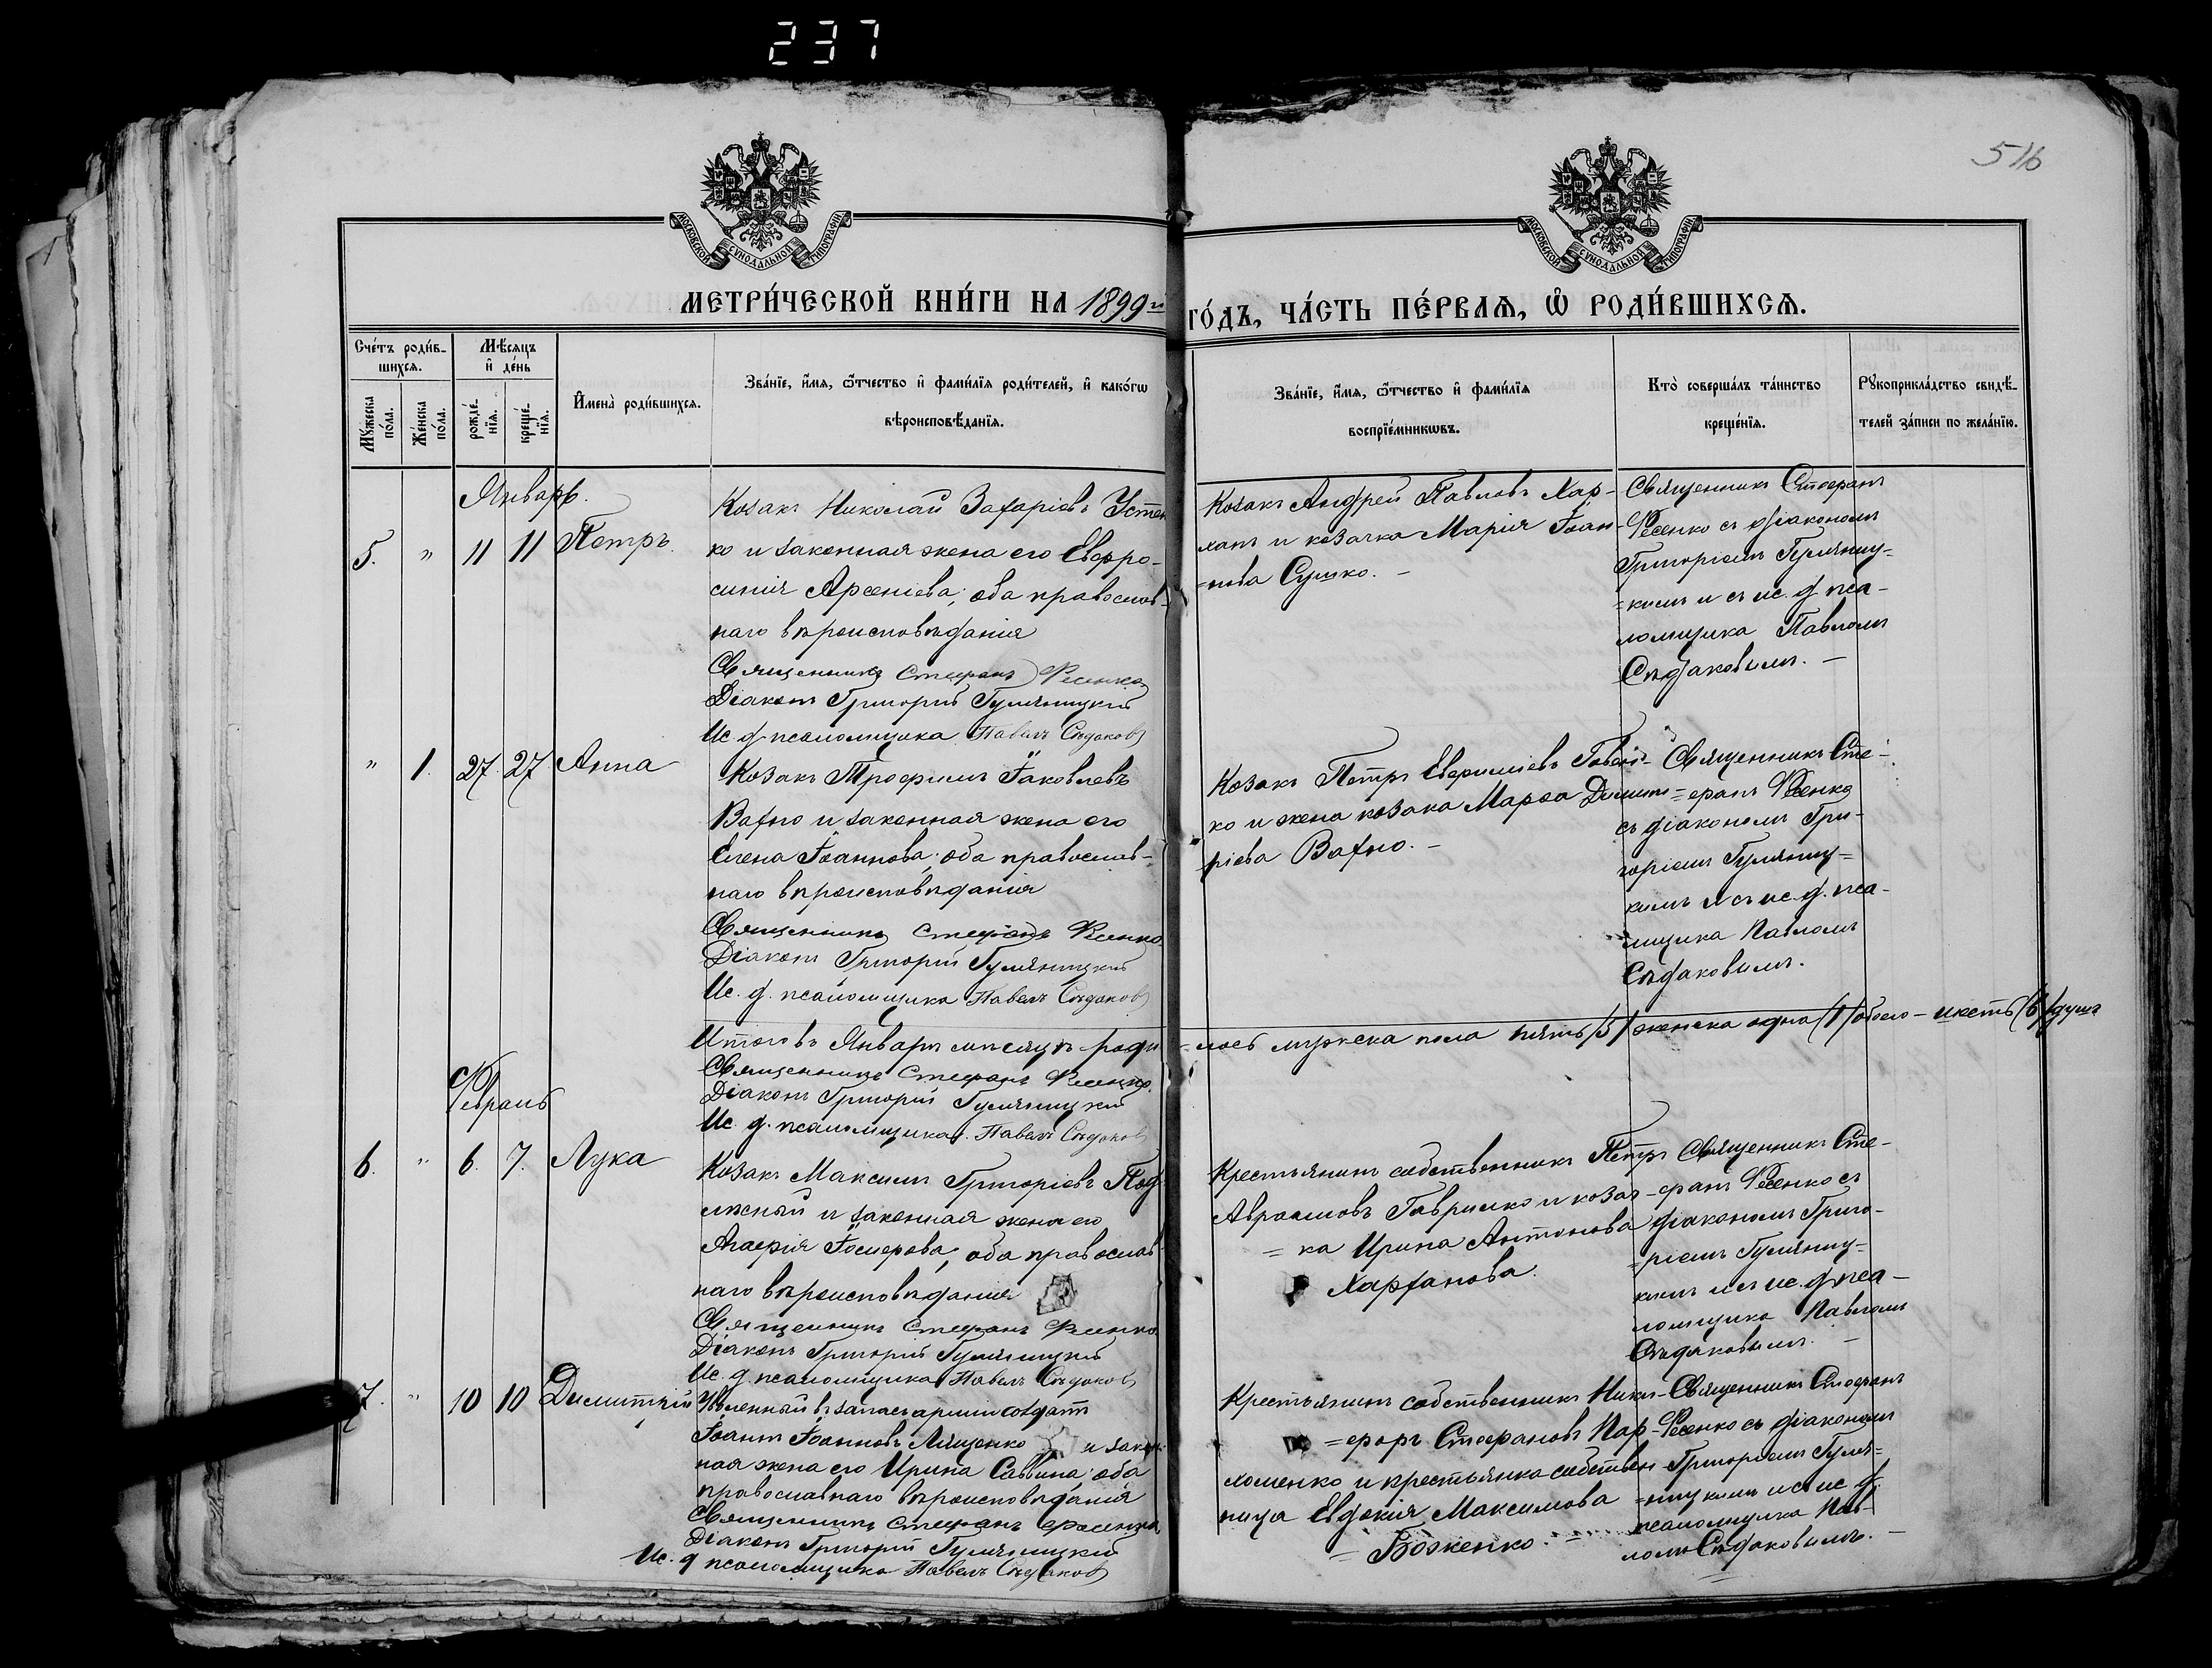 237
516
МОСКОВСКОЙ СѴНОДАЛЬНОЙ ТИПОГРАФІИ
МОСКОВСКОЙ СѴНОДАЛЬНОЙ ТИПОГРАФІИ
МЕТРИ́ЧЕСКОЙ КНИ́ГИ НА 1899й ГО́ДЪ, ЧА́СТЬ ПЕ́РВАѦ, Ѡ҆ РОДИ́ВШИХСѦ.
Сче́тъ роди́вшихсѧ.
Мꙋ́жеска по́ла.
Же́нска по́ла.
Мѣ́сѧцъ и҆ де́нь
рожде́нїѧ.
креще́нїѧ.
И҆мена̀ роди́вшихсѧ.
Зва́нїе, и҆́мѧ, ѻ҆́тчество и҆ фами́лїѧ роди́телей, и҆ како́гѡ
вѣроисповѣ́данїѧ.
Зва́нїе, и҆́мѧ, ѻ҆́тчество и҆ фами́лїѧ
воспрїе́мникѡвъ.
Кто̀ соверша́лъ та́инство
креще́нїѧ.
Рꙋкоприкла́дство свидѣ́-
телей за́писи по жела́нїю.
Январь.
5. " 11 11 Петръ.
Козакъ Николай Захаріевъ Устен
ко и законная жена его Евфро-
синія Арсеніева; оба православ-
наго вѣроисповѣданія
Священникъ Стефанъ Фесенко
Діаконъ Григорій Гумяницкій
Ис. д. псаломщика Павелъ Сѣдаковъ
Козакъ Андрей Павловъ Хар-
ханъ и козачка Марія Іоан-
=нова Сушко. -
Священникъ Стефанъ
Фесенко съ діакономъ
Григоріемъ Гумяниц=
=кимъ и съ ис. д. пса-
ломщика Павломъ
Сѣдаковымъ. -
" 1. 27. 27. Анна
Козакъ Трофимъ Іаковлевъ
Вахно и законная жена его
Елена Іоаннова; оба православ-
наго вѣроисповѣданія
Священникъ Стефанъ Фесенко
Діаконъ Григорій Гумяницкій
Ис. д. псаломщика Павелъ Сѣдаковъ
Козакъ Петръ Евфиміевъ
ко и жена козака Марѳа Димит=
ріева Вахно. -
Священникъ Сте-
=фанъ Фесенко
съ діакономъ Гри-
горіемъ Гумяниц=
кимъ и съ ис. д. пса-
мщика Павломъ
Сѣдаковымъ.
Итого въ Январѣ мѣсяцѣ роди=лось мужеска пола пять /5/ женска одна /1/ обоего - шесть /6/ душъ
Священникъ Стефанъ Фесенко.
Діаконъ Григорій Гумяницкій
Ис. д. псаломщика Павелъ Сѣдаковъ
Февраль
6. " 6. 7. Лука
Козакъ Максимъ Григоріевъ Под
лѣсный и законная жена его
Агафія Іосифова; оба православ-
наго вѣроисповѣданія
Священникъ Стефанъ Фесенко
Діаконъ Григорій Гумяницкій
Ис. д. псаломщика Павелъ Сѣдаковъ
Крестьянинъ собственникъ Петръ
Авраамовъ Гавришко и козач-
=ка Ирина Антонова
Харханова.
Священникъ Сте-
=фанъ Фесенко съ
діакономъ Григо-
=ріемъ Гумяниц=
кимъ и съ ис. д. пса-
ломщика Павломъ
Сѣдаковымъ. -
7. " 10 10 Димитрій
Уволенный въ запасъ арміи солдатъ
Іоаннъ Іоанновъ Лященко и закон
ная жена его Ирина Саввина; оба
православнаго вѣроисповѣданія
Священникъ Стефанъ Фесенко
Діаконъ Григорій Гумяницкій
Ис. д псаломщика Павелъ Сѣдаковъ
Крестьянинъ собственникъ Ники-
=форъ Стефановъ Пар-
хоменко и крестьянка собствен
ница Евдокія Максимова
= Боженко. =
Священникъ Стефанъ
Фесенко съ діакономъ
Григоріемъ Гумя=
=ницкимъ и съ ис. д.
псаломщика Пав-
ломъ Сѣдаковымъ. -